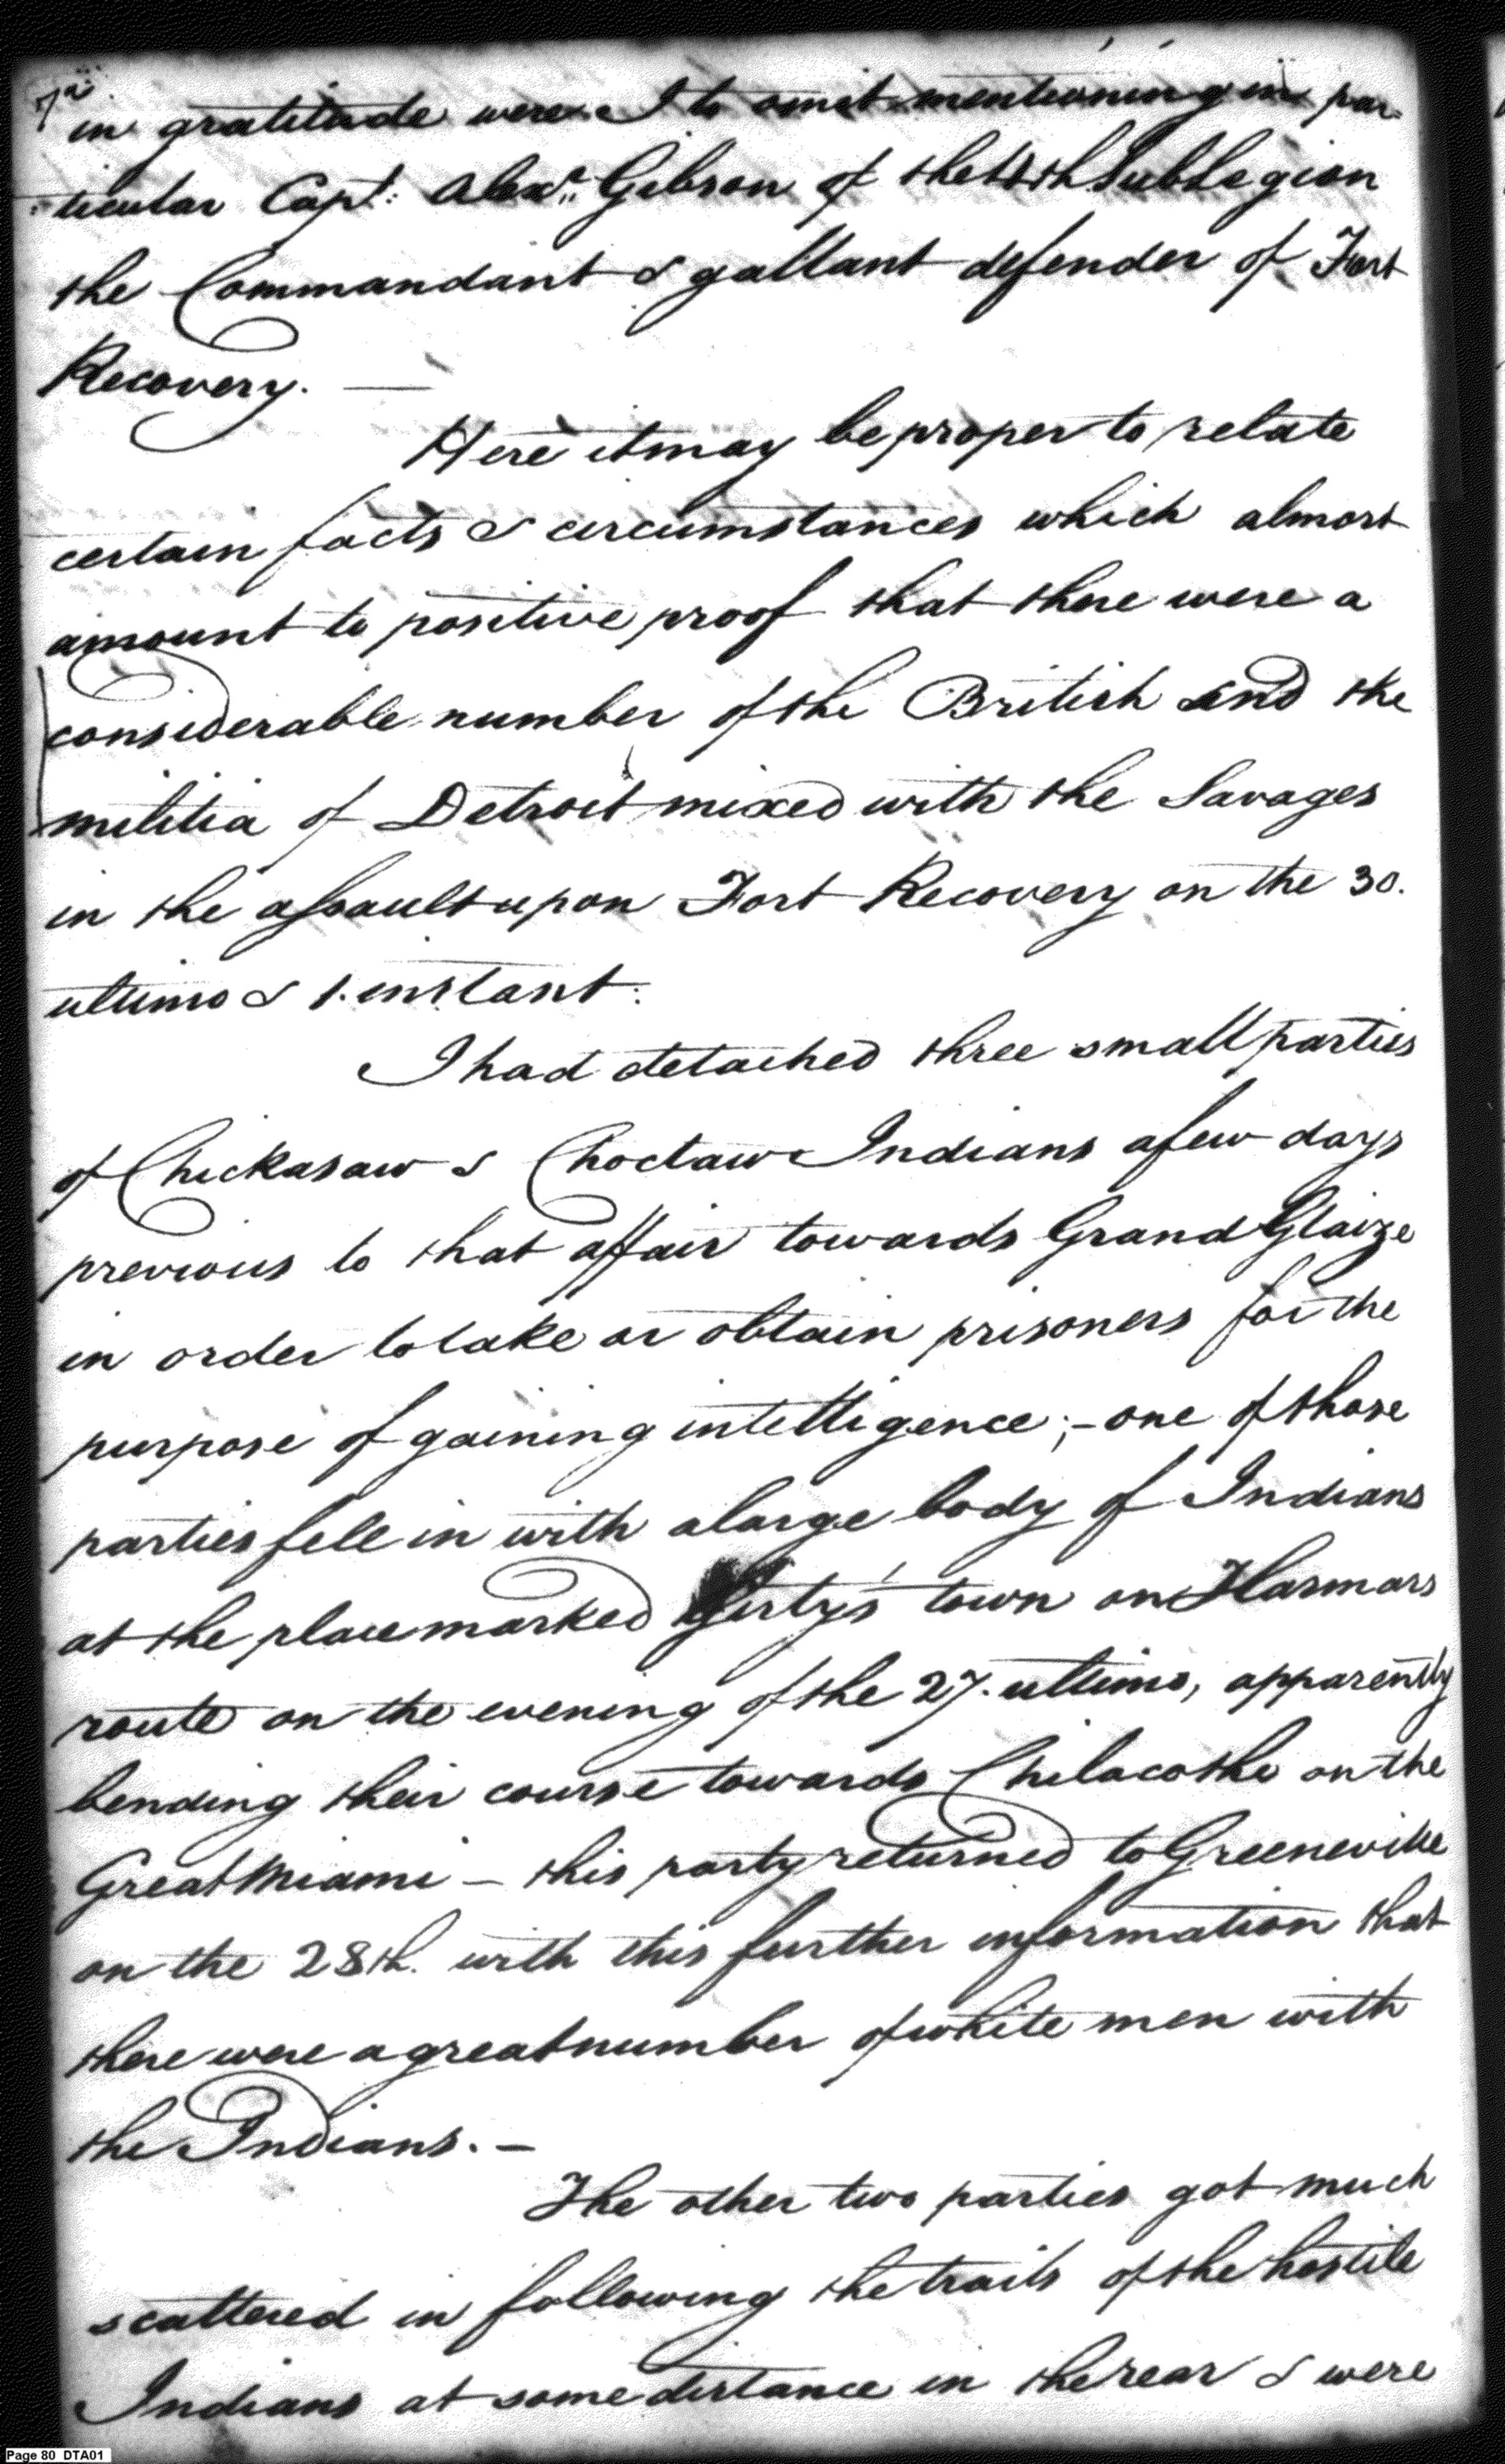 7
in gratitude were I to omit mentioning in par-
ticular Capt: Alexr. Gibson of the 4th Sub Legion
the Commandant & gallant defender of Fort
Recovery. —
Here it may be proper to relate
certain facts & circumstances which almost
amount to positive proof that there were a
considerable number of the British and the
militia of Detroit mixed with the Savages
in the assault upon Fort Recovery on the 30.
ultimo & 1. instant:
I had detached three small parties
of Chickasaw & Choctaw Indians a few days
previous to that affair towards Grand Glaize
in order to take or obtain prisoners for the
purpose of gaining intelligence; - one of those
parties fell in with a large body of Indians
at the place marked Girty's town on Harmars
route on the evening of the 27. ultimo, apparently
bending their course towards Chilacothe on the
Great Miami - this party returned to Greeneville
on the 28th. with this further information that
there were a great number of white men with
the Indians. -
The other two parties got much
scattered in following the trails of the hostile
Indians at some distance in the rear & were
Page 80 DTA01